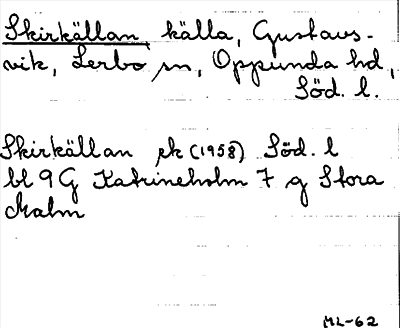 Skirkällan, källa, Gustavs-
vik, Lerbo sn, Oppunda hd,
Söd. l.
Skirkällan ek (1958) Söd. l
bl 9 G Katrineholm 7 g Stora
Malm
ML-62